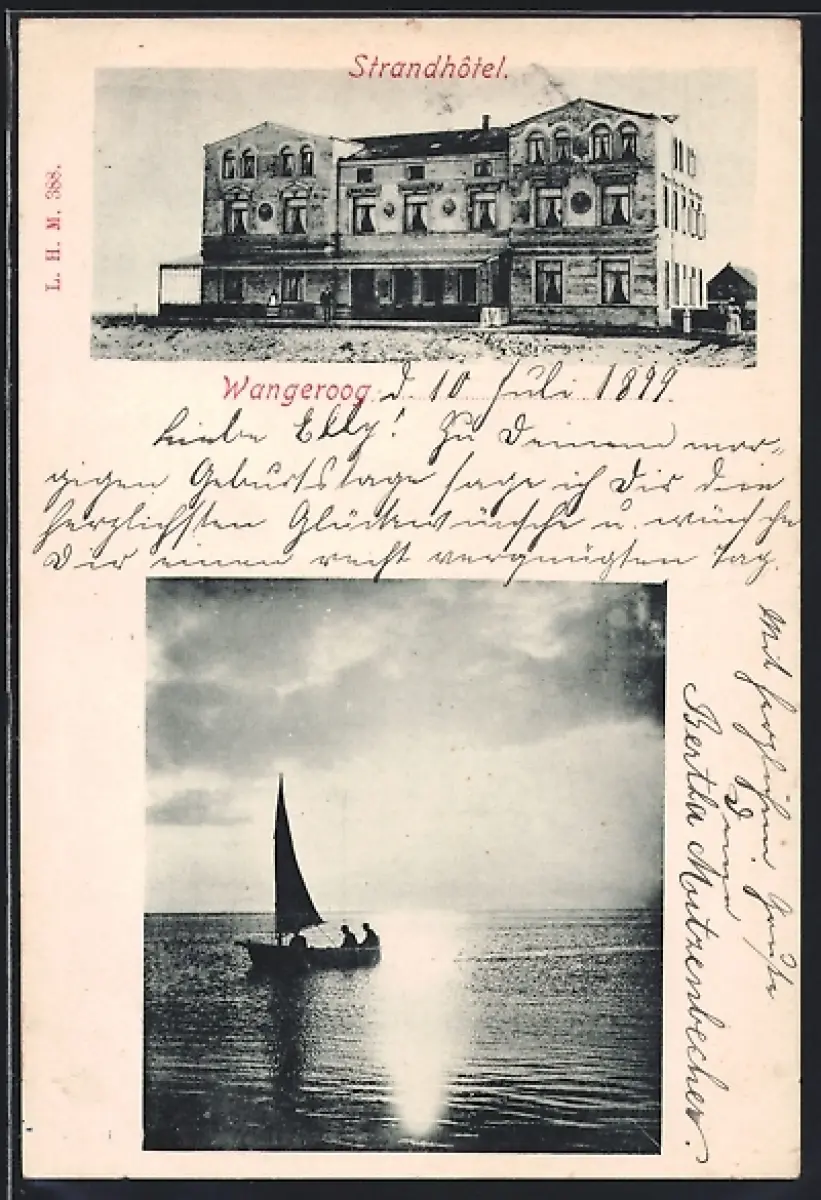 Strandhôtel.
L. H. M. 388.
Wangeroog, d. 10 Juli 1899.
Liebe Elly! Zu Deinem mor-
gigen Geburtstage sage ich Dir die
herzlichsten Glückwünsche u. wünsche
Dir einen recht vergnügten Tag.
Mit herzlichem Gruße
Deine
Bertha Matzenbecher.